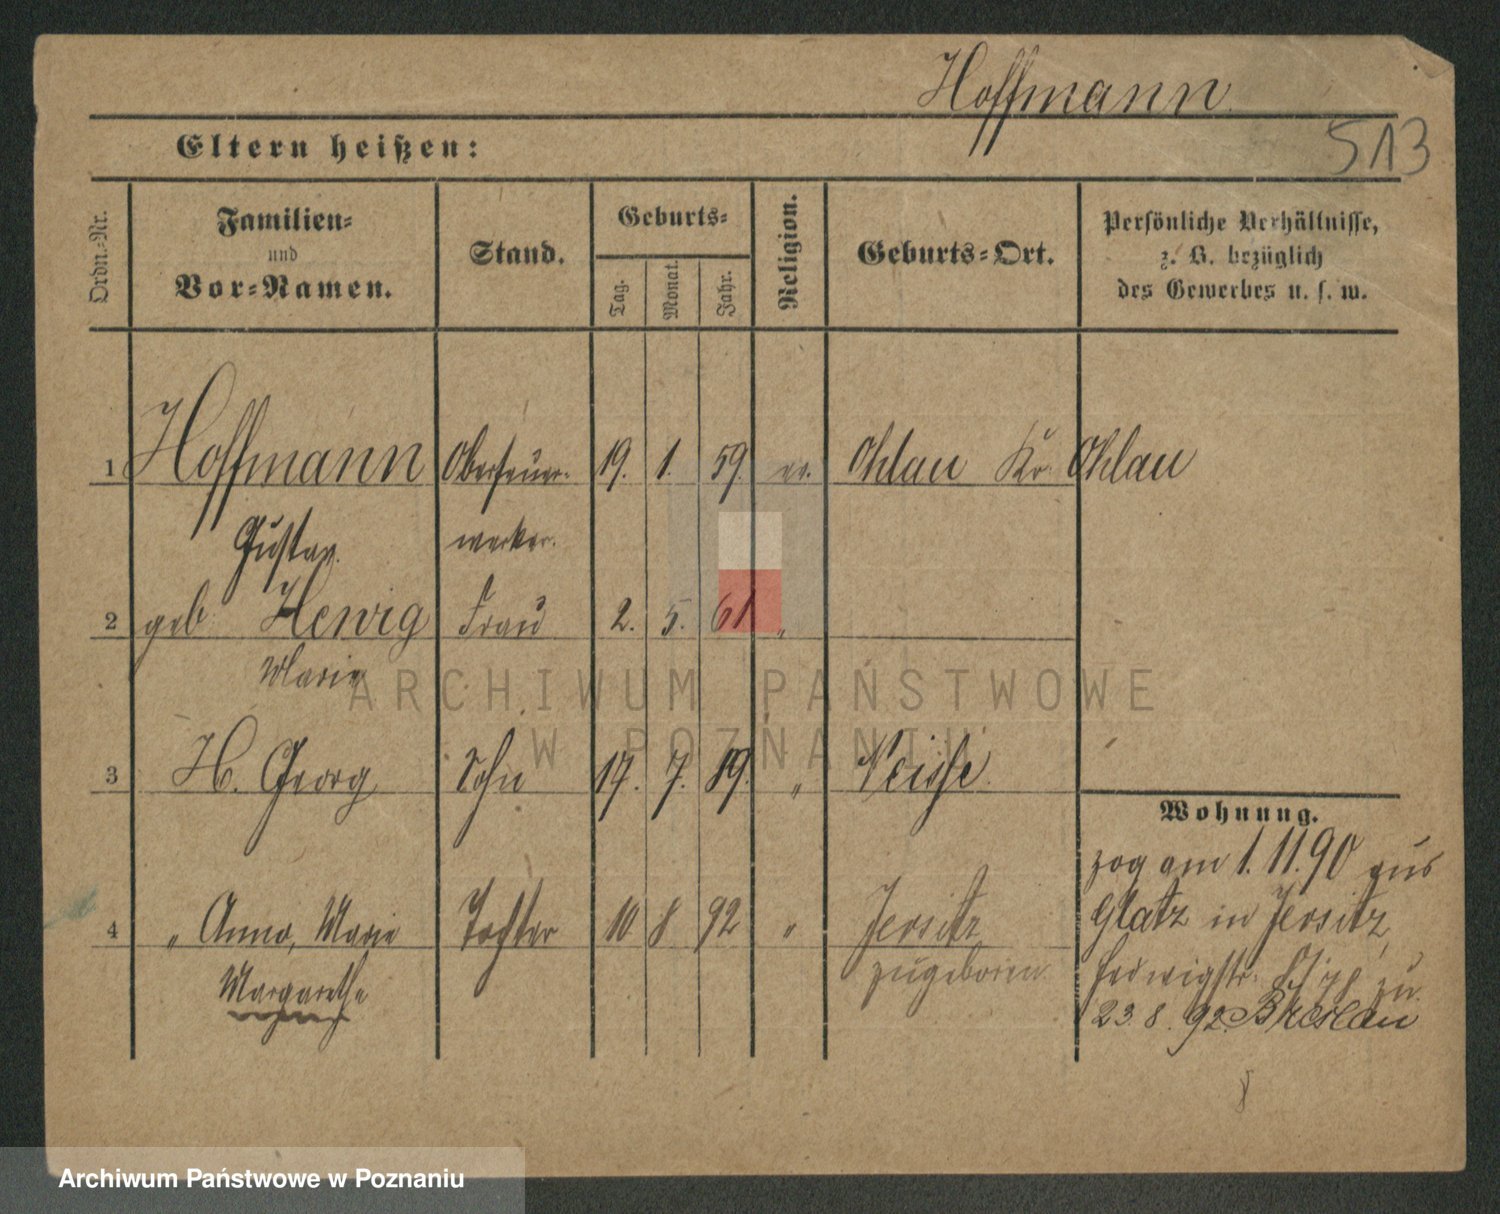 Hoffmann
513
Eltern heißen:
Ordn.-Nr.
Familien-
und
Vor-Namen.
Stand.
Geburts-
Tag.
Monat.
Jahr.
Religion.
Geburts-Ort.
Persönliche Verhältnisse,
z. B. bezüglich
des Gewerbes u. s. w.
1 Hoffmann Oberfeuer- 19. 1. 59. ev. Ohlau Kr. Ohlau
Gustav. werker.
2 geb Hewig Frau 2. 5. 61 „
Marie
3 H. Georg Sohn 17. 7. 89. „ Neisse.
Wohnung.
zog am 1.11.90 aus
4 „ Anna, Marie Tochter 10 8 92 „ Jersitz
Glatz in Jersitz,
Margarethe zugeboren
Hedwigstr. zu
23. 8. 92. Breslau
ARCHIWUM PAŃSTWOWE
W POZNANIU
Archiwum Państwowe w Poznaniu